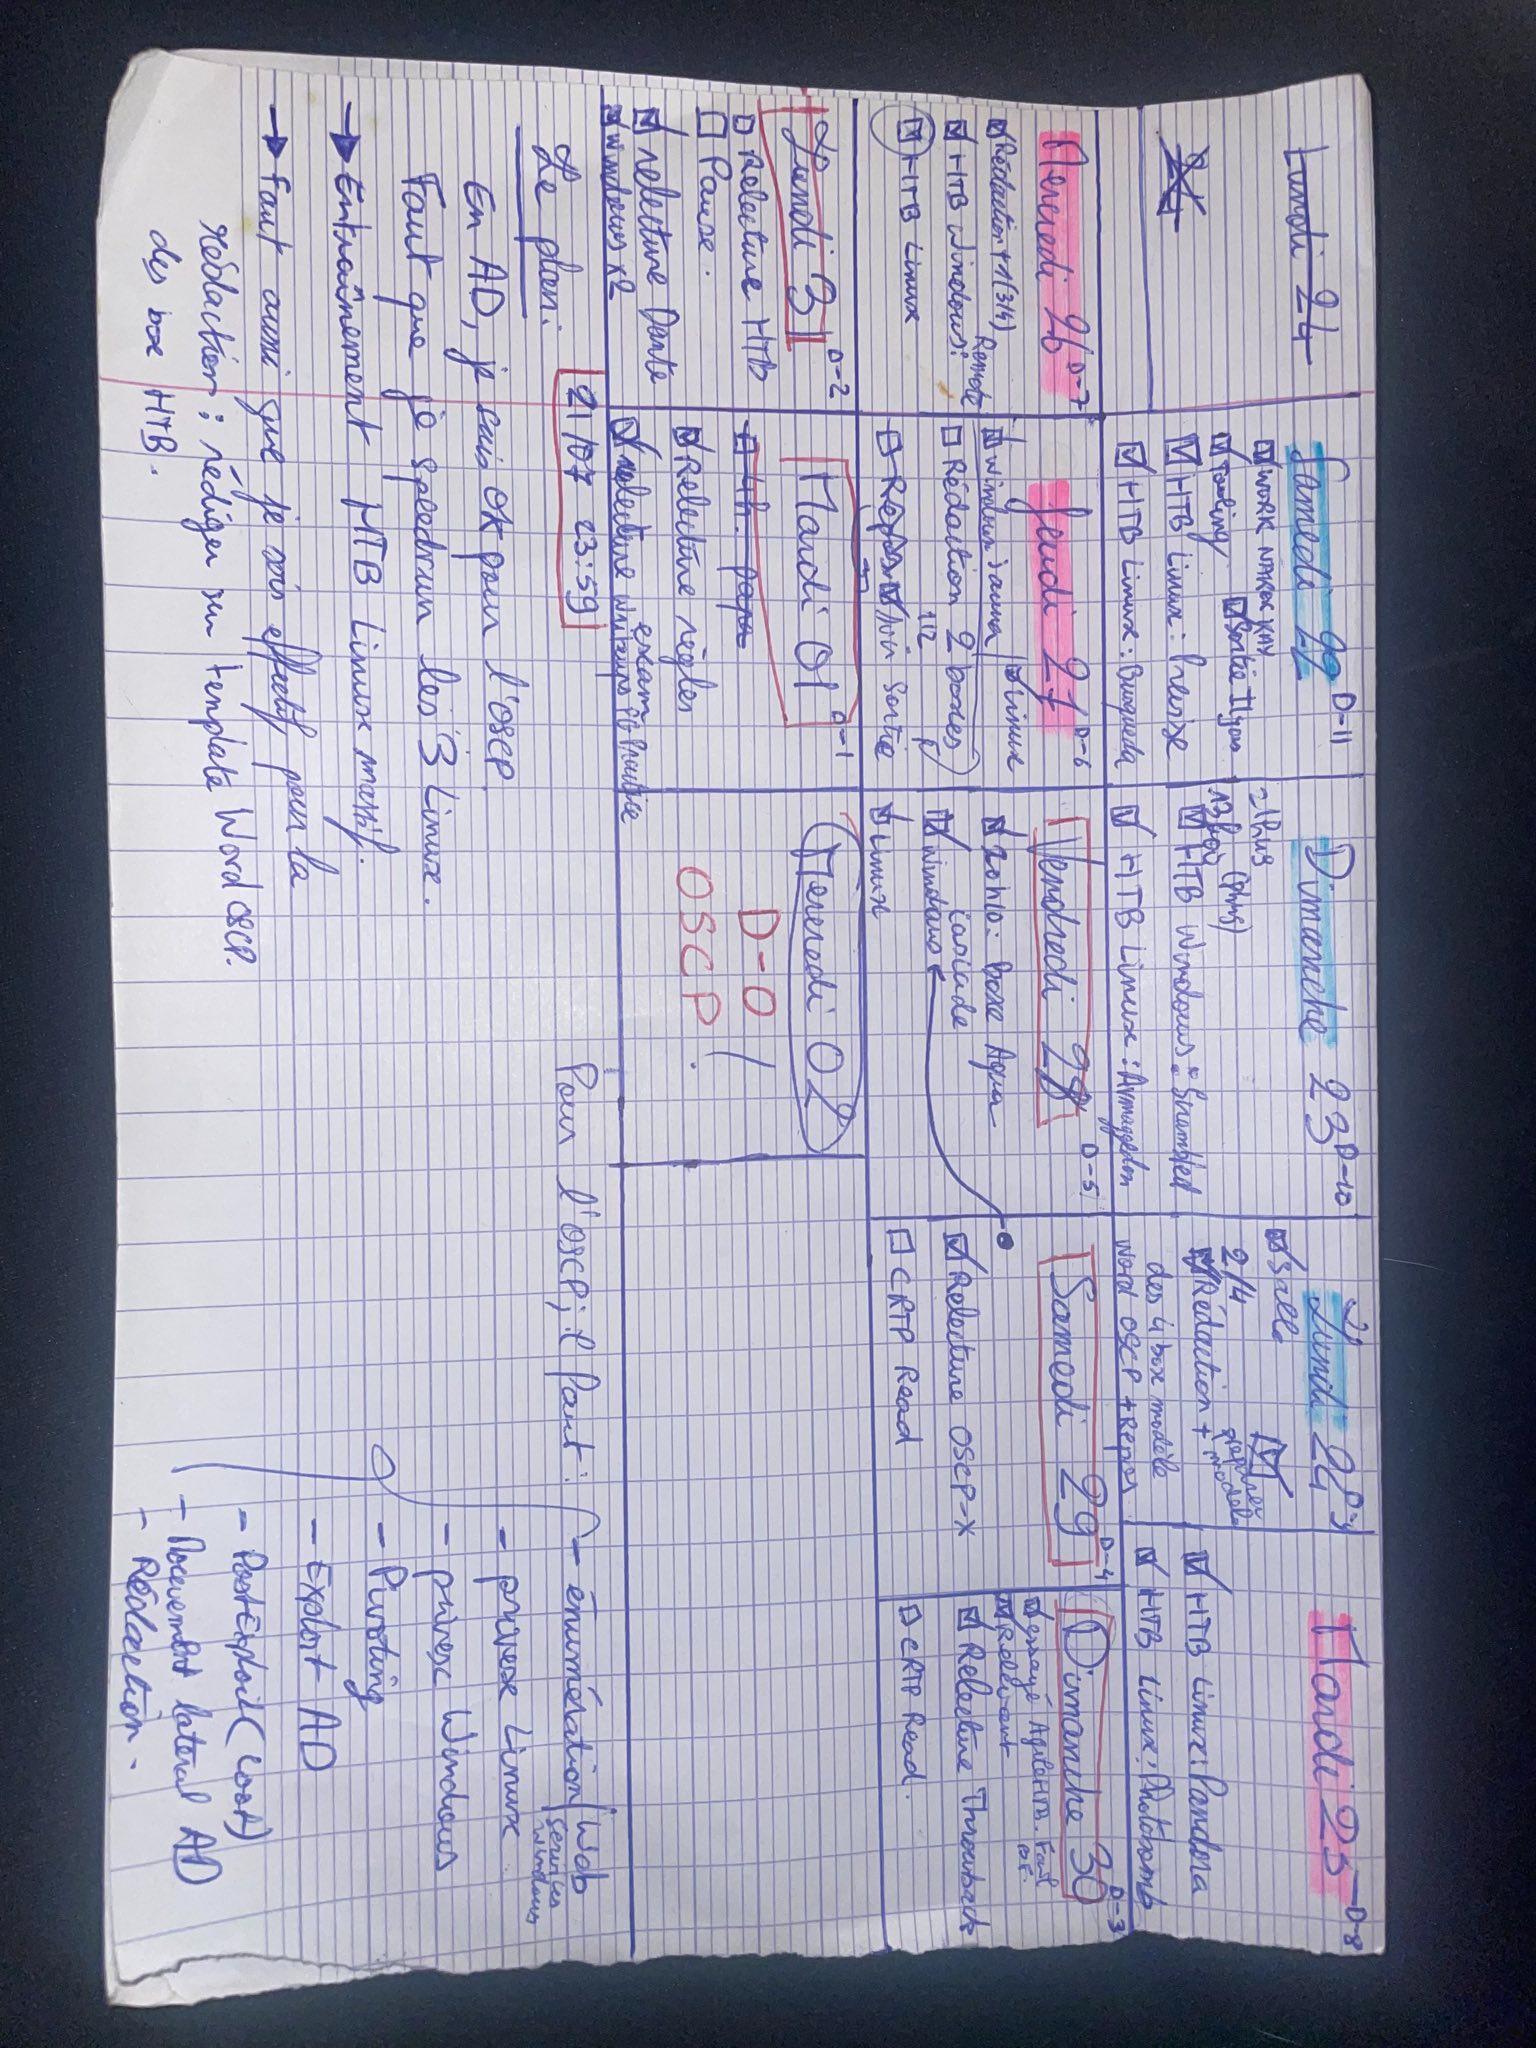 Lundi 24
Samedi 22 D-11
WORK
Tooling
Sortie Ilyan
HTB Linux:
HTB Linux:
Dimanche 23 D-10
HTB Windows:
HTB Linux: Armaggedon
Lundi 24
Salle
2/4
Rédaction +
des 4 box modèle
Word OSCP + Repos
Mardi 25 D-8
HTB Linux: Pandora
HTB Linux: Photobomb
Mercredi 26 D-7
Rédaction +1(3/4)
HTB Windows: Remote
HTB Linux
Jeudi 27 D-6
Windows Sauna
Linux
Rédaction 2 boxes
1/2
Repos
Sortie
Vendredi 28 D-5
20h10: box Aqua
Windows
Linux
Samedi 29 D-4
Relecture OSCP-X
CRTP Read
Dimanche 30 D-3
essayé Agile HTB.
Relevant
Relecture Throwback
CRTP Read.
Lundi 31 D-2
Relecture HTB
Pause.
relecture Dante
Windows x2
Mardi 01 D-1
4h papa
Relecture règles
exam
relecture
Mercredi 02
D-0
OSCP!
Le plan:
01/07 23:59
En AD, je suis OK pour l'OSCP.
Faut que je speedrun les 3 Linux.
→ Entraînement HTB Linux massif.
→ Faut aussi que je sois effectif pour la
rédaction: rédiger sur template Word OSCP.
des box HTB.
Pour l'OSCP, il faut:
- énumération/Web
services
Windows
- privesc Linux
- privesc Windows
- Pivoting
- Exploit AD
- PostExploit (Loot)
- Mouvement latéral AD
- Rédaction.